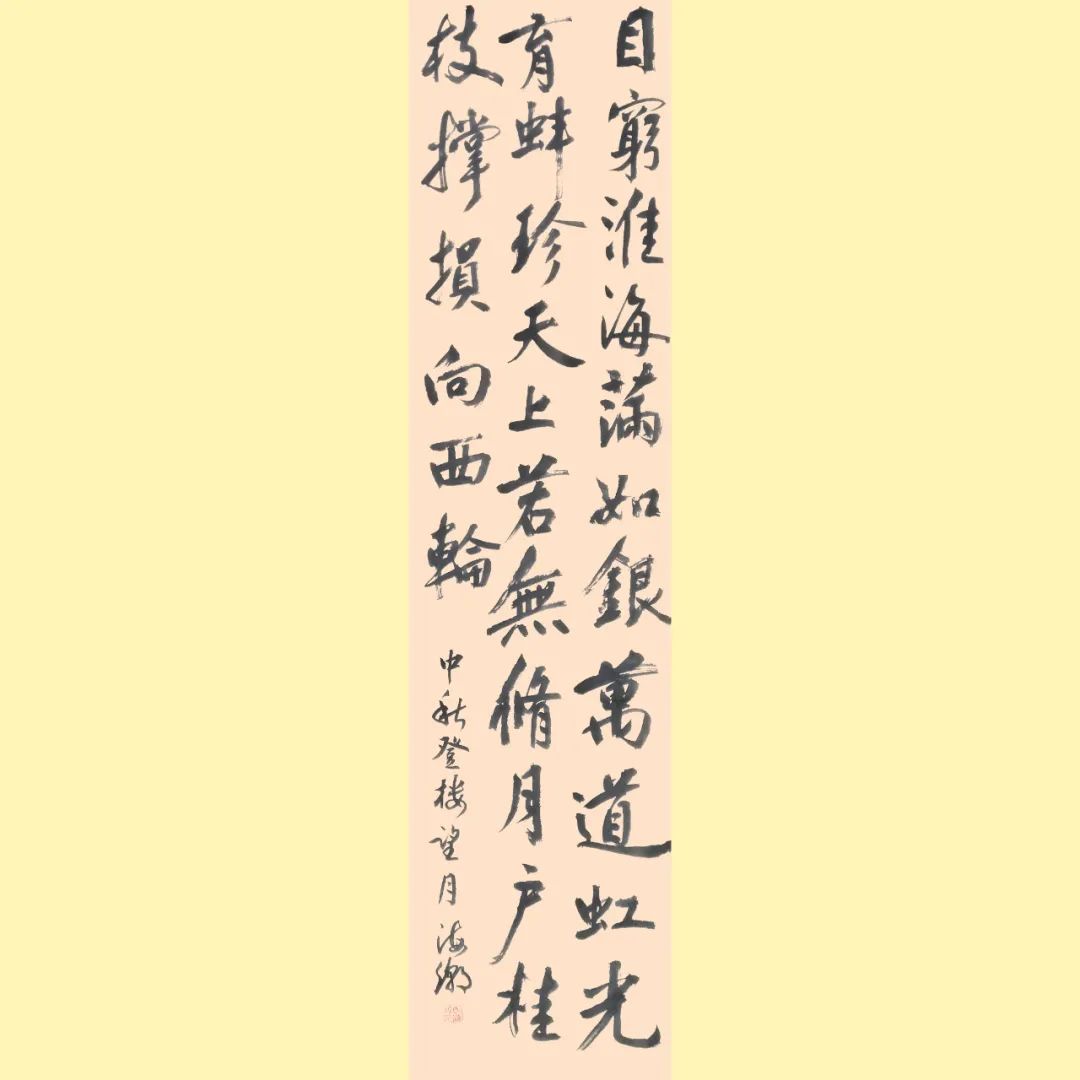 目窮淮海滿如銀萬道虹光
育蚌珍天上若無脩月户桂
枝撑損向西輪
中秋登楼望月 海